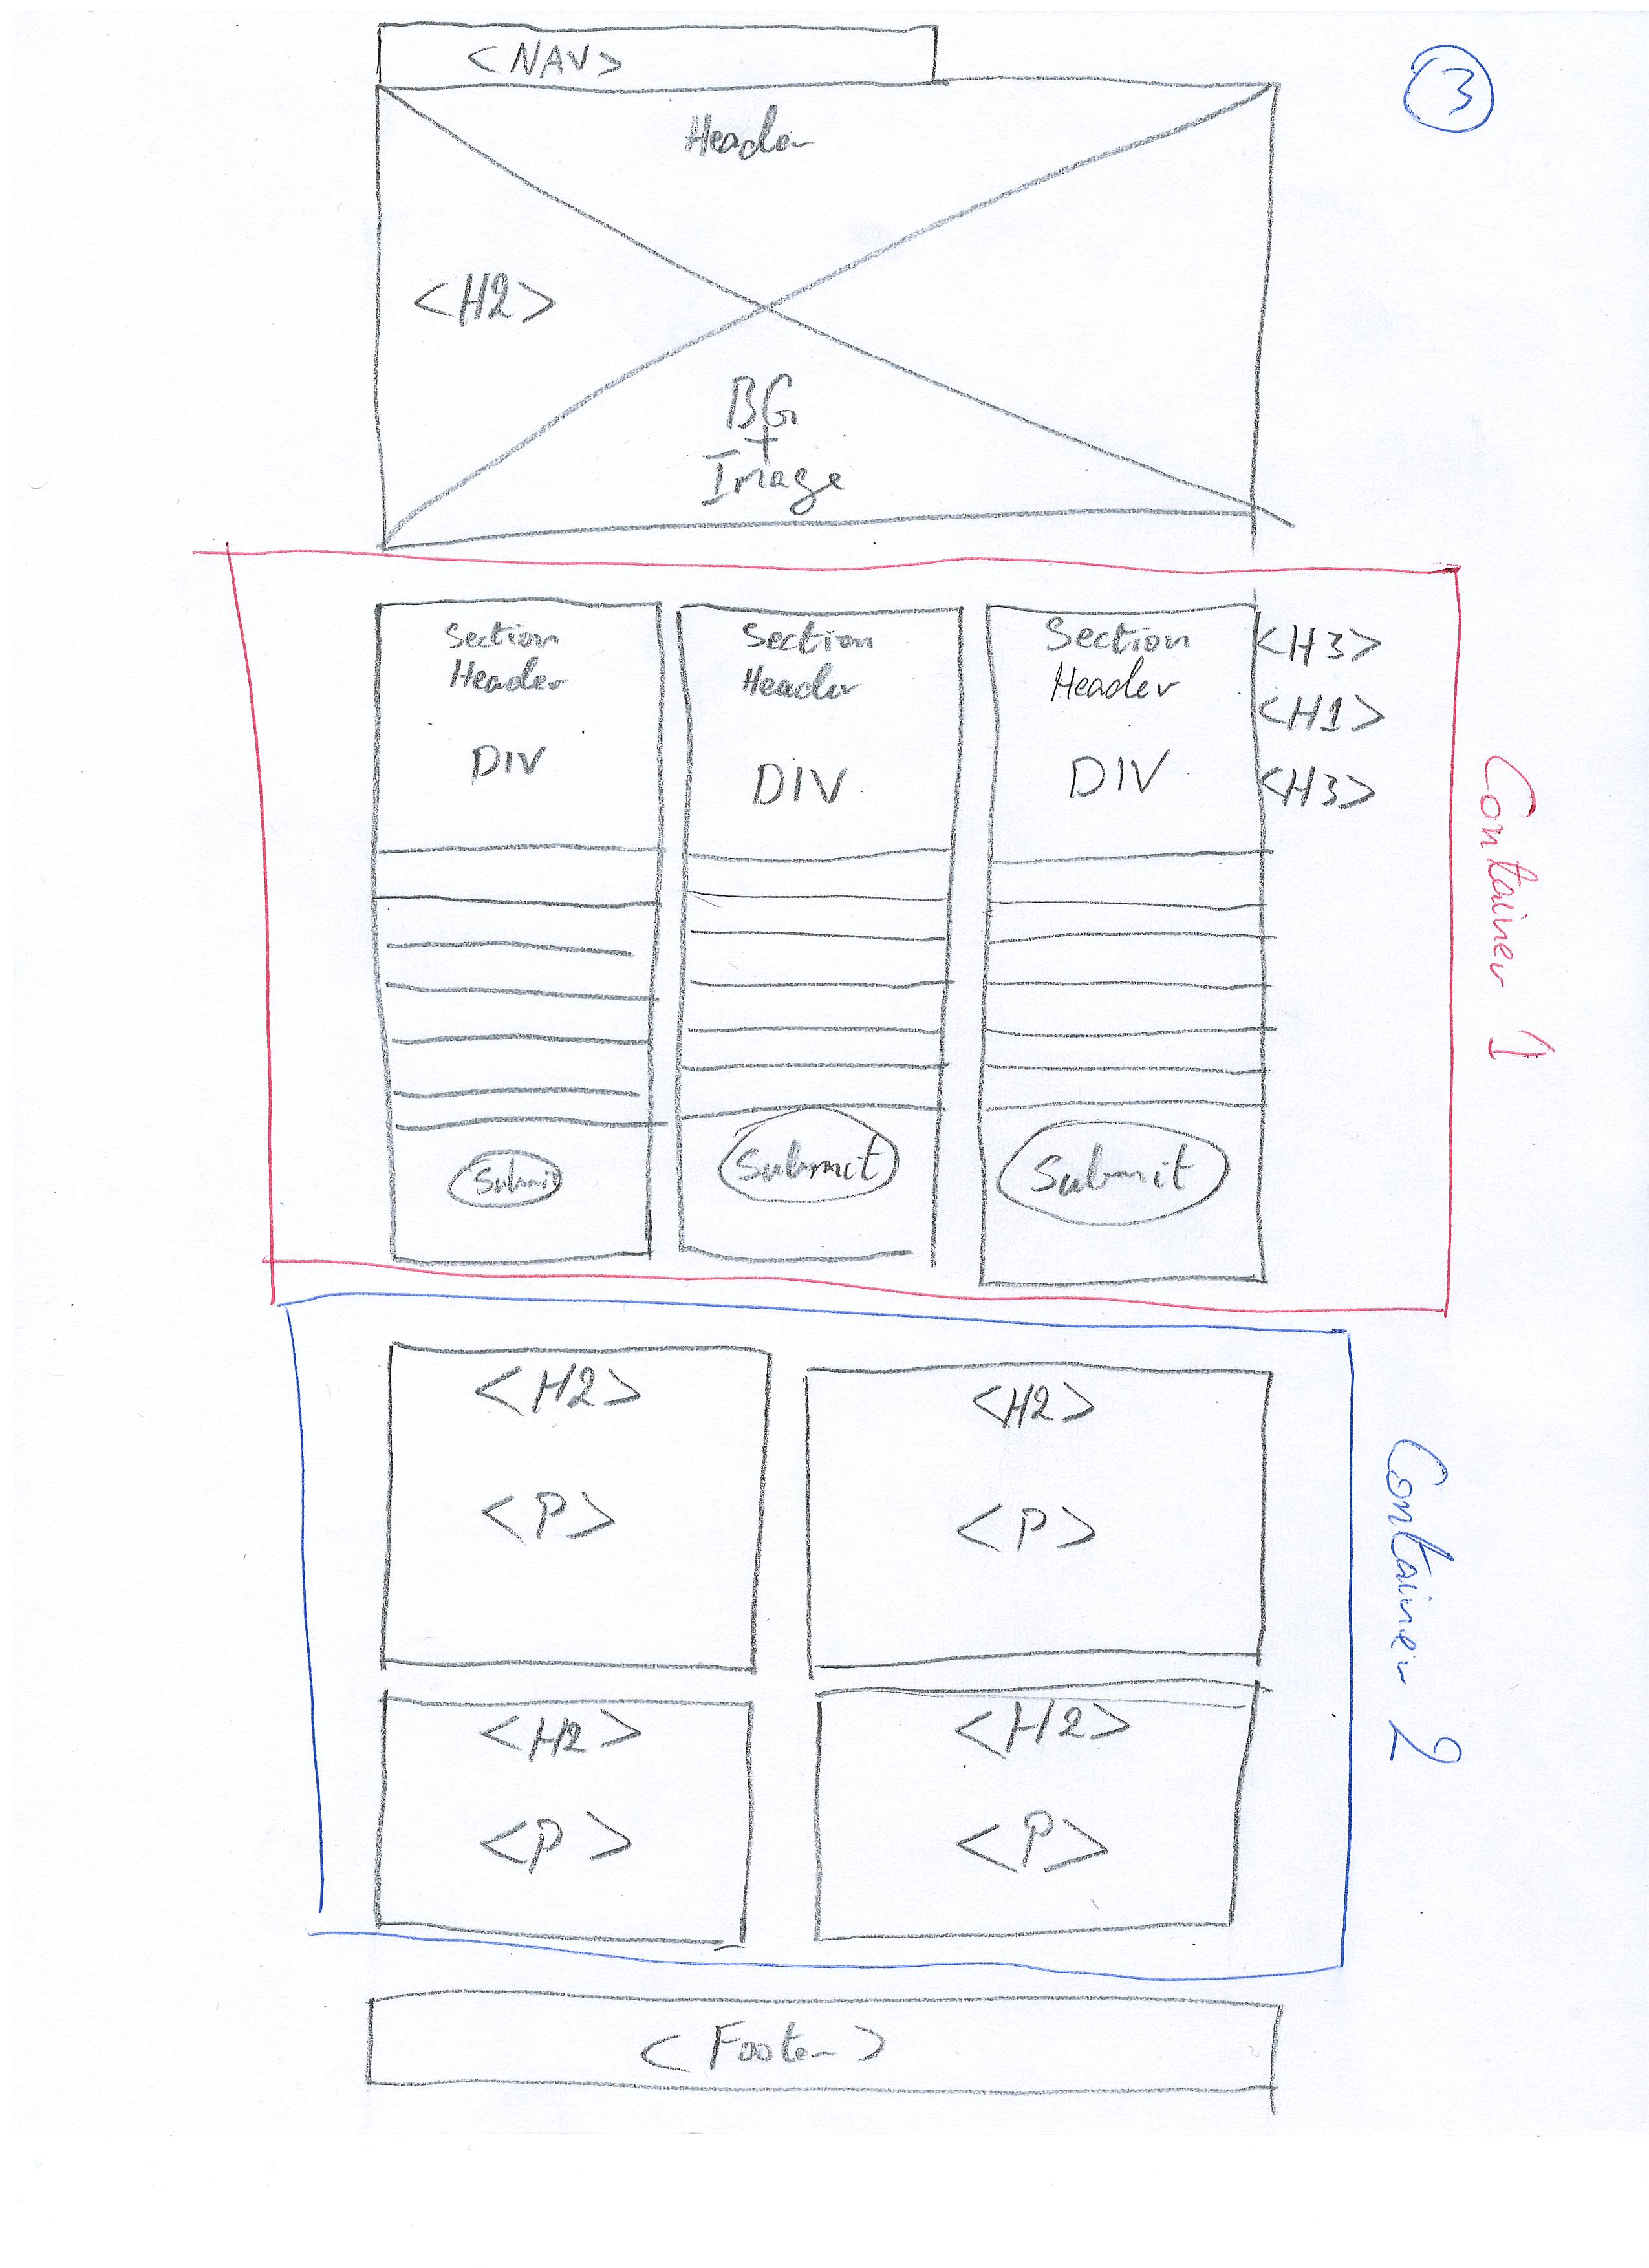 <NAV>
3
Header
<H2>
BG
+
Image
Section
Header
DIV
Submit
Section
Header
DIV
Submit
Section
Header
DIV
Submit
<H3>
<H1>
<H3>
Container 1
<H2>
<P>
<H2>
<P>
<H2>
<P>
<H2>
<P>
Container 2
<Footer>